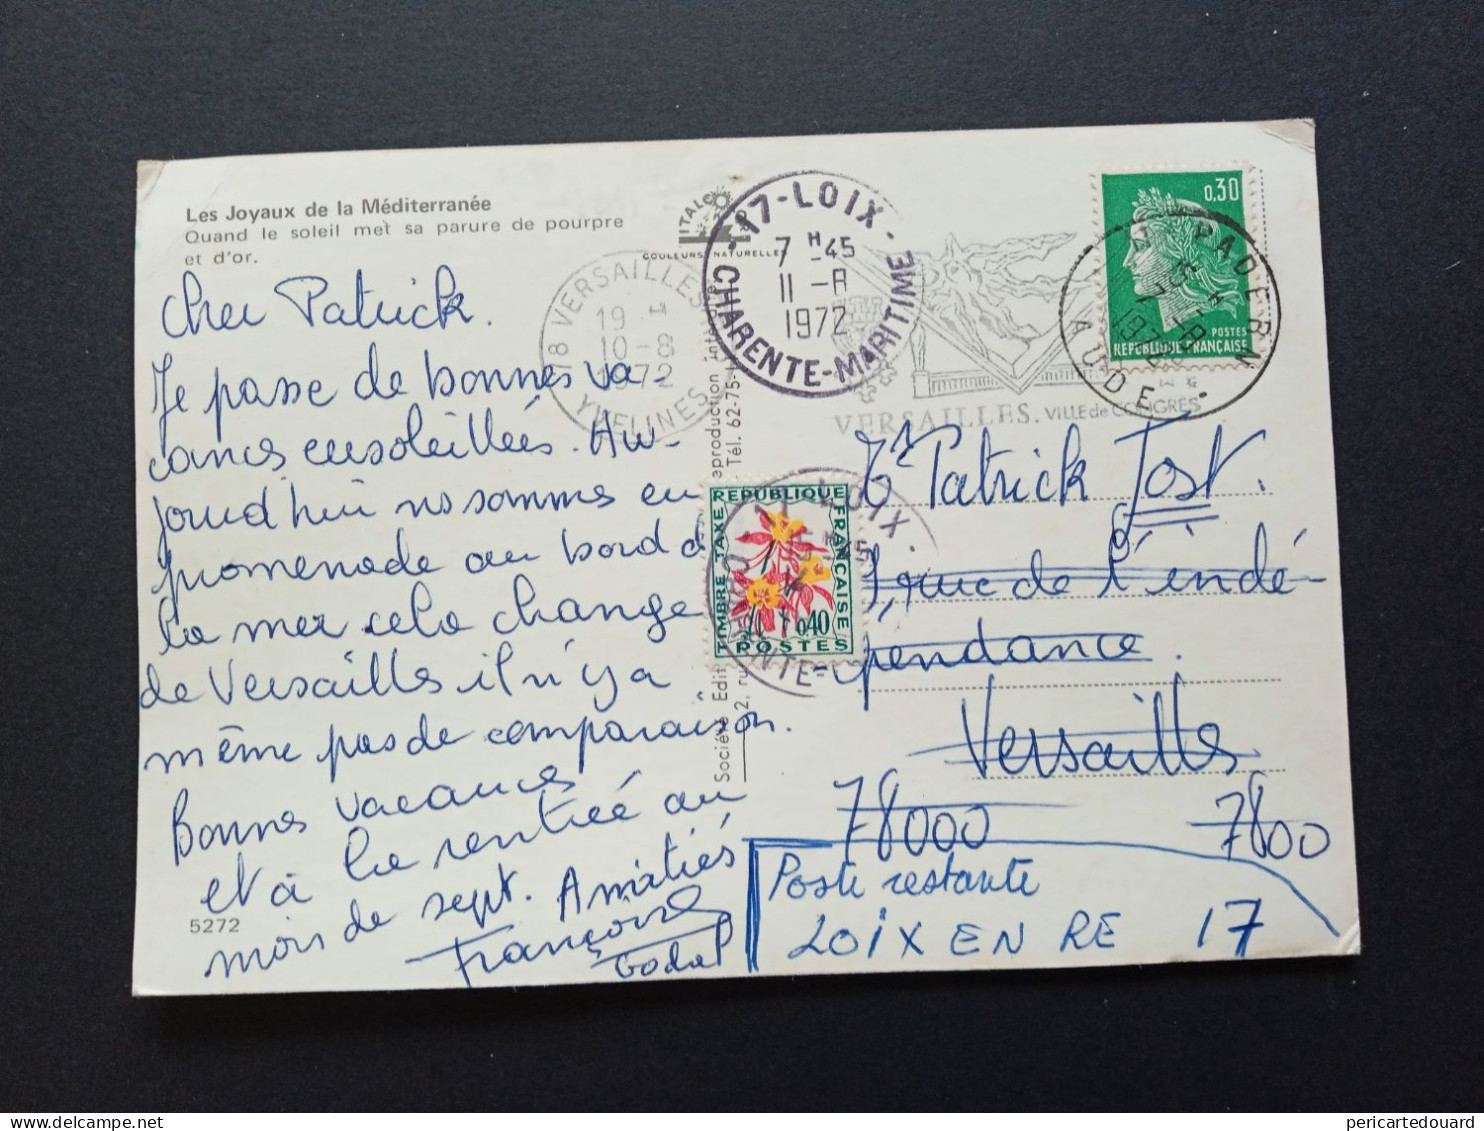 Les Joyaux de la Méditerranée
Quand le soleil met sa parure de pourpre
et d'or.
Cher Patrick.
Je passe de bonnes va-
cances ensoleillées. Au-
jourd'hui ns sommes en
promenade au bord d
la mer cela change
de Versailles il n'y a
même pas de comparaison.
Bonnes vacances
et à la rentrée au
mois de sept. Amitiés
Françoise
Godal
5272
ITALC
COULEURS NATURELLES
Société Edit
2, ru
eproduction inter
Tél. 62-75-
78 VERSAILLES
19 H
10-8
1972
YVELINES
17-LOIX
7 H 45
11-8
1972
CHARENTE-MARITIME
VERSAILLES. VILLE de CONGRES
0,30
POSTES
REPUBLIQUE FRANÇAISE
PADERN
1972
AUDE
REPUBLIQUE
FRANCAISE
TIMBRE TAXE
0,40
POSTES
LOIX
NTE-
Mr Patrick Tost.
7, rue de l'indé-
pendance.
Versailles
78000 7800
Poste restante
LOIX EN RE 17
pericartedouard